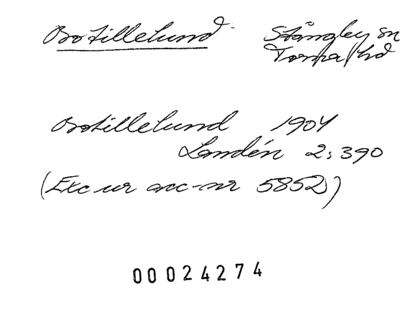 Botillelund Stångby sn
Torna hd
Botillelund 1904
Landén 2:390
(Exc ur acc-nr 5852)
00024274